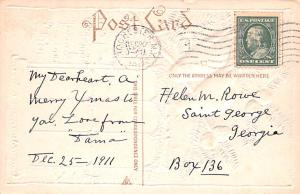 Post Card
U.S. POSTAGE
ONE CENT
ONLY THE ADDRESS MAY BE WRITTEN HERE
My Dearheart, A
Merry Xmas to
you. Love from
"Dama"
Dec. 25 - 1911
Helen M. Rowe
Saint George
Georgia
Box 136